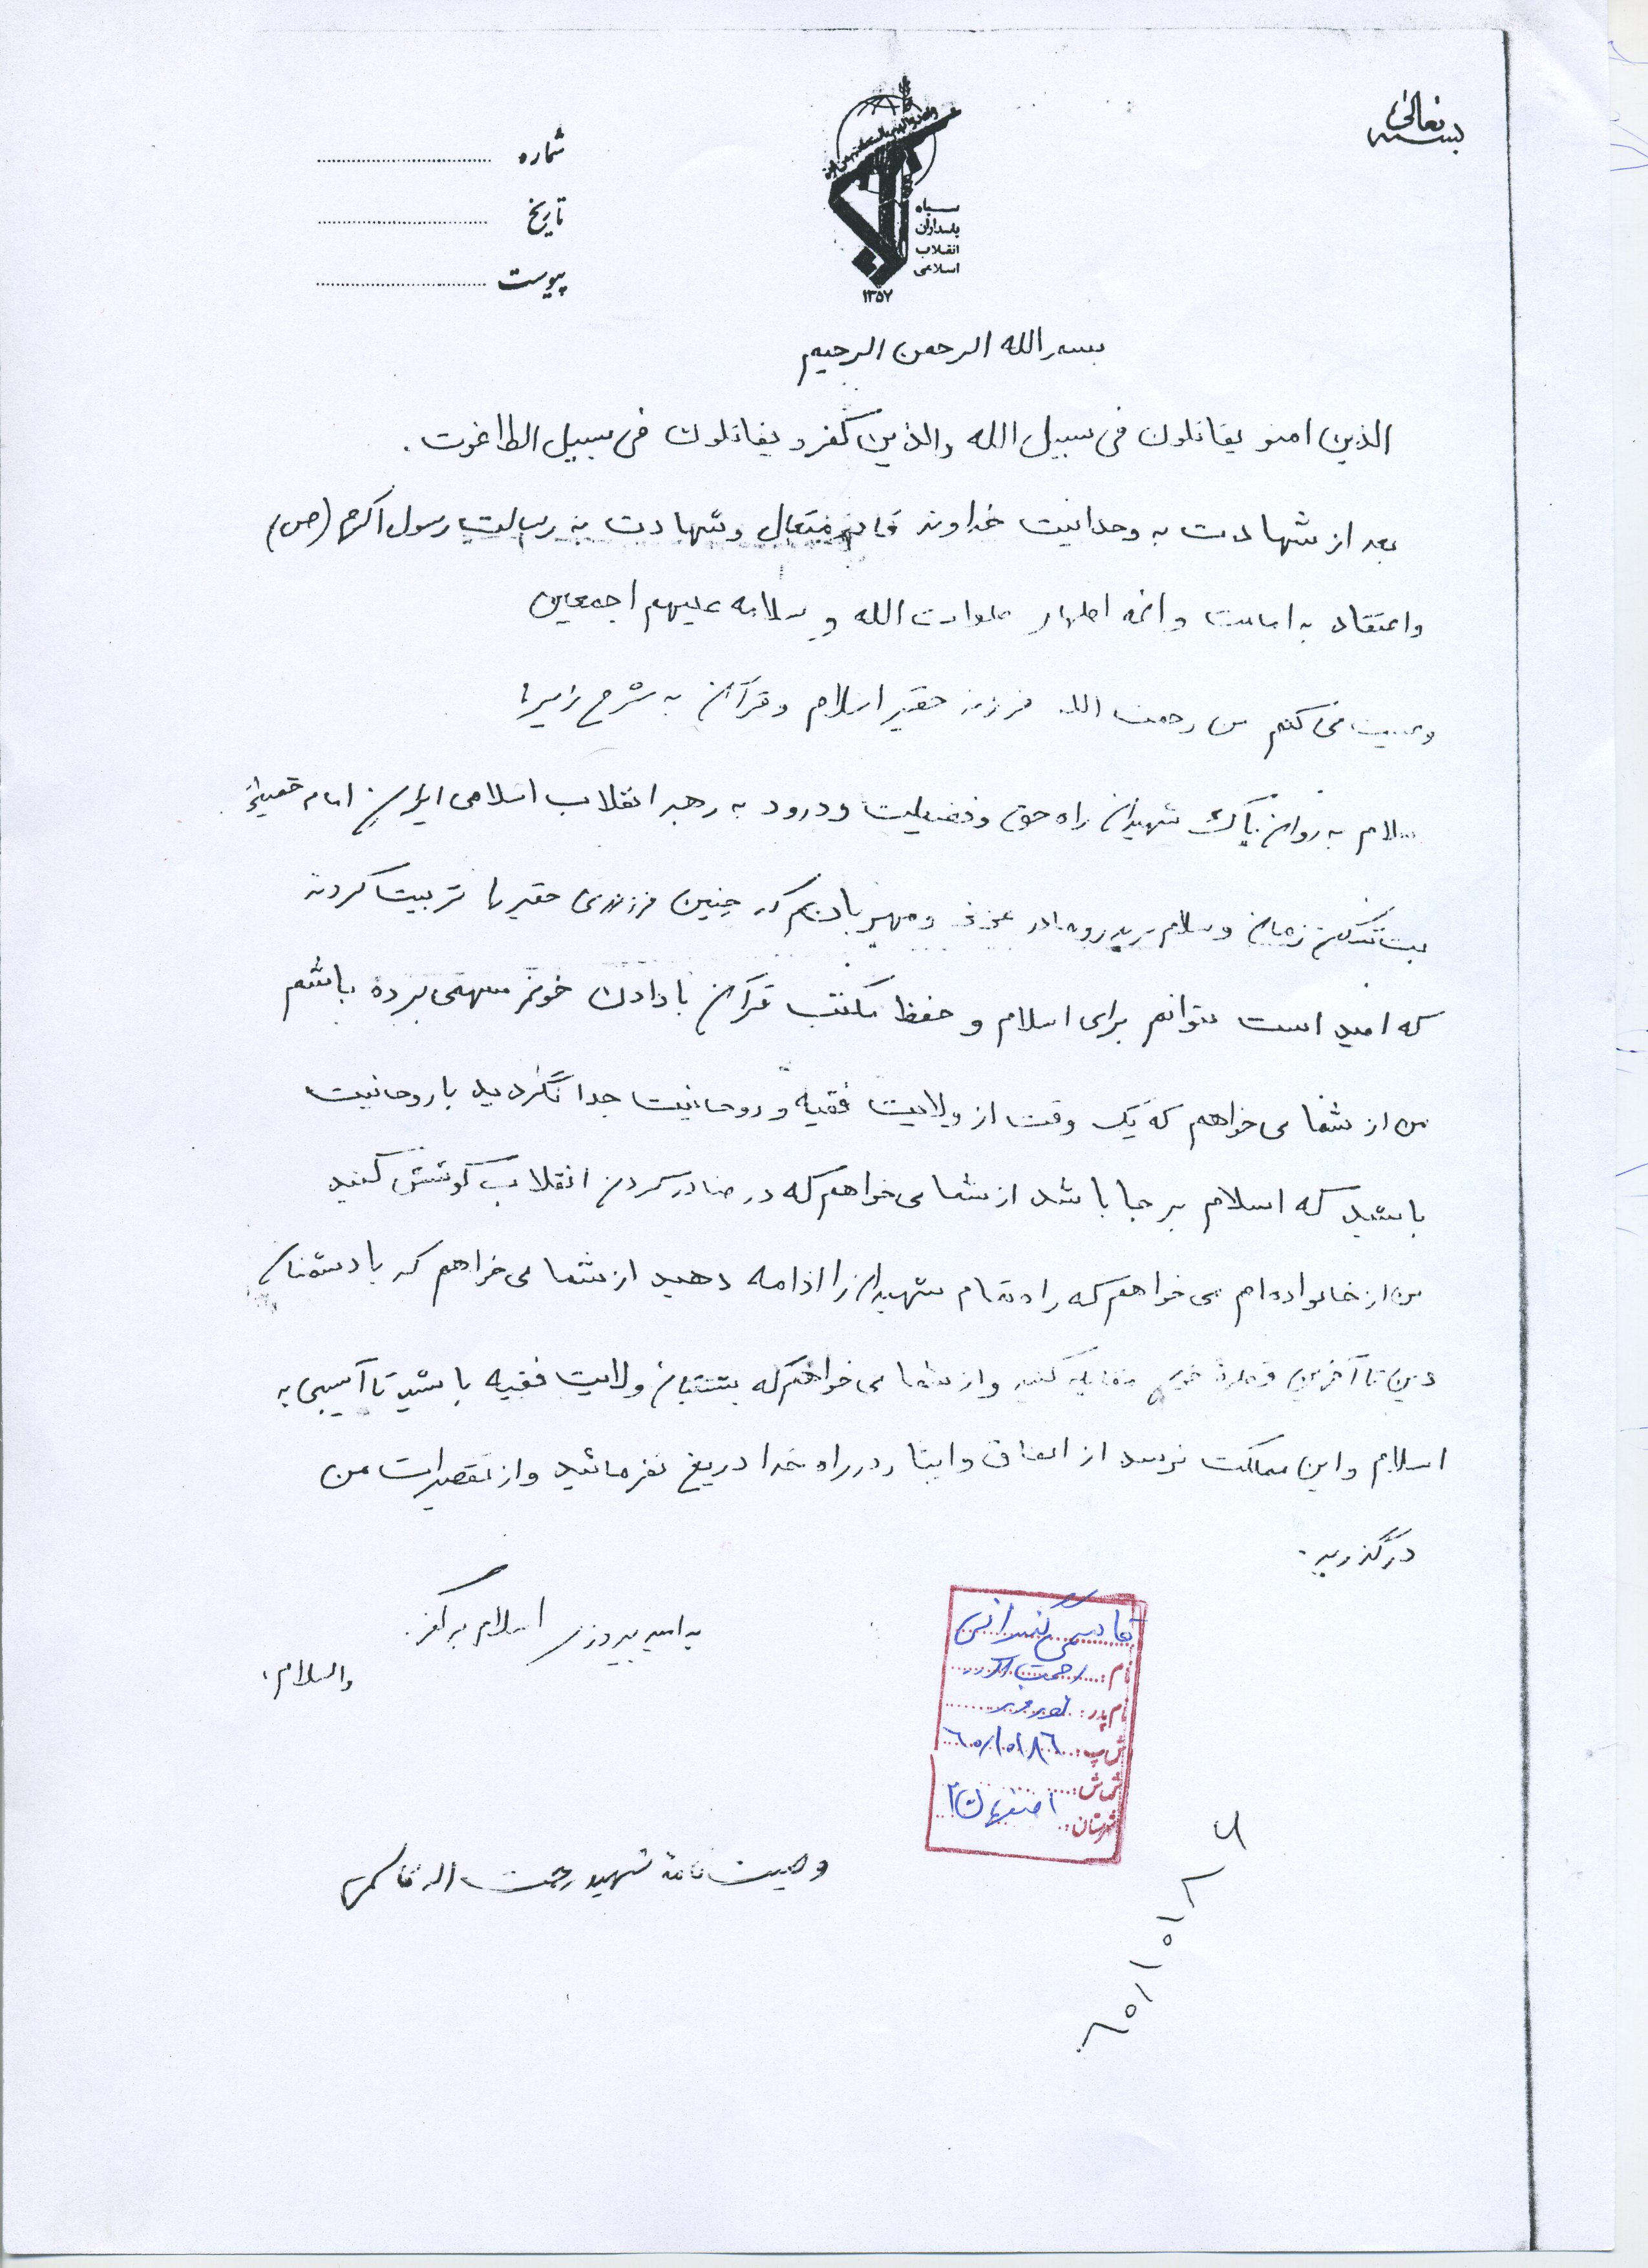 بسمه تعالی
شماره
تاریخ
پیوست
سپاه
پاسداران
انقلاب
اسلامی
۱۳۵۷
بسم الله الرحمن الرحیم
الذین امنو یقاتلون فی سبیل الله والذین کفرو یقاتلون فی سبیل الطاغوت .
بعد از شهادت به وحدانیت خداوند قادر متعال و شهادت به رسالت رسول اکرم (ص)
واعتقاد به امامت و ائمه اطهار صلوات الله و سلامه علیهم اجمعین
وصیت می کنم من رحمت الله فرزند حقیر اسلام و قرآن به شرح زیر:
سلام به روان پاک شهیدان راه حق و فضیلت و درود به رهبر انقلاب اسلامی ایران امام خمینی
بت شکن زمان و سلام بر پدر و مادر عزیز و مهربانم که چنین فرزندی حقیر را تربیت کردند
که امید است بتوانم برای اسلام و حفظ مکتب قرآن با دادن خونم سهمی برده باشم
من از شما می خواهم که یک وقت از ولایت فقیه و روحانیت جدا نگردید با روحانیت
باشید که اسلام بر جا باشد از شما می خواهم که در صادر کردن انقلاب کوشش کنید
من از خانواده ام می خواهم که راه تمام شهیدان را ادامه دهید از شما می خواهم که با دشمنان
دین تا آخرین قطره خون مقابله کنید و از شما می خواهم که پشتیبان ولایت فقیه باشید تا آسیبی به
اسلام و این مملکت نرسد از انفاق و ایثار در راه خدا دریغ نفرمائید و از تقصیرات من
درگذرید .
به امید پیروزی اسلام بر کفر
والسلام
نام: رحمت الله
نام پدر:
ش پ: ۶۰/۱۰۱۸۶
ش ش:
شهرستان: اصفهان ۲
وصیت نامه شهید رحمت اله قاسمی